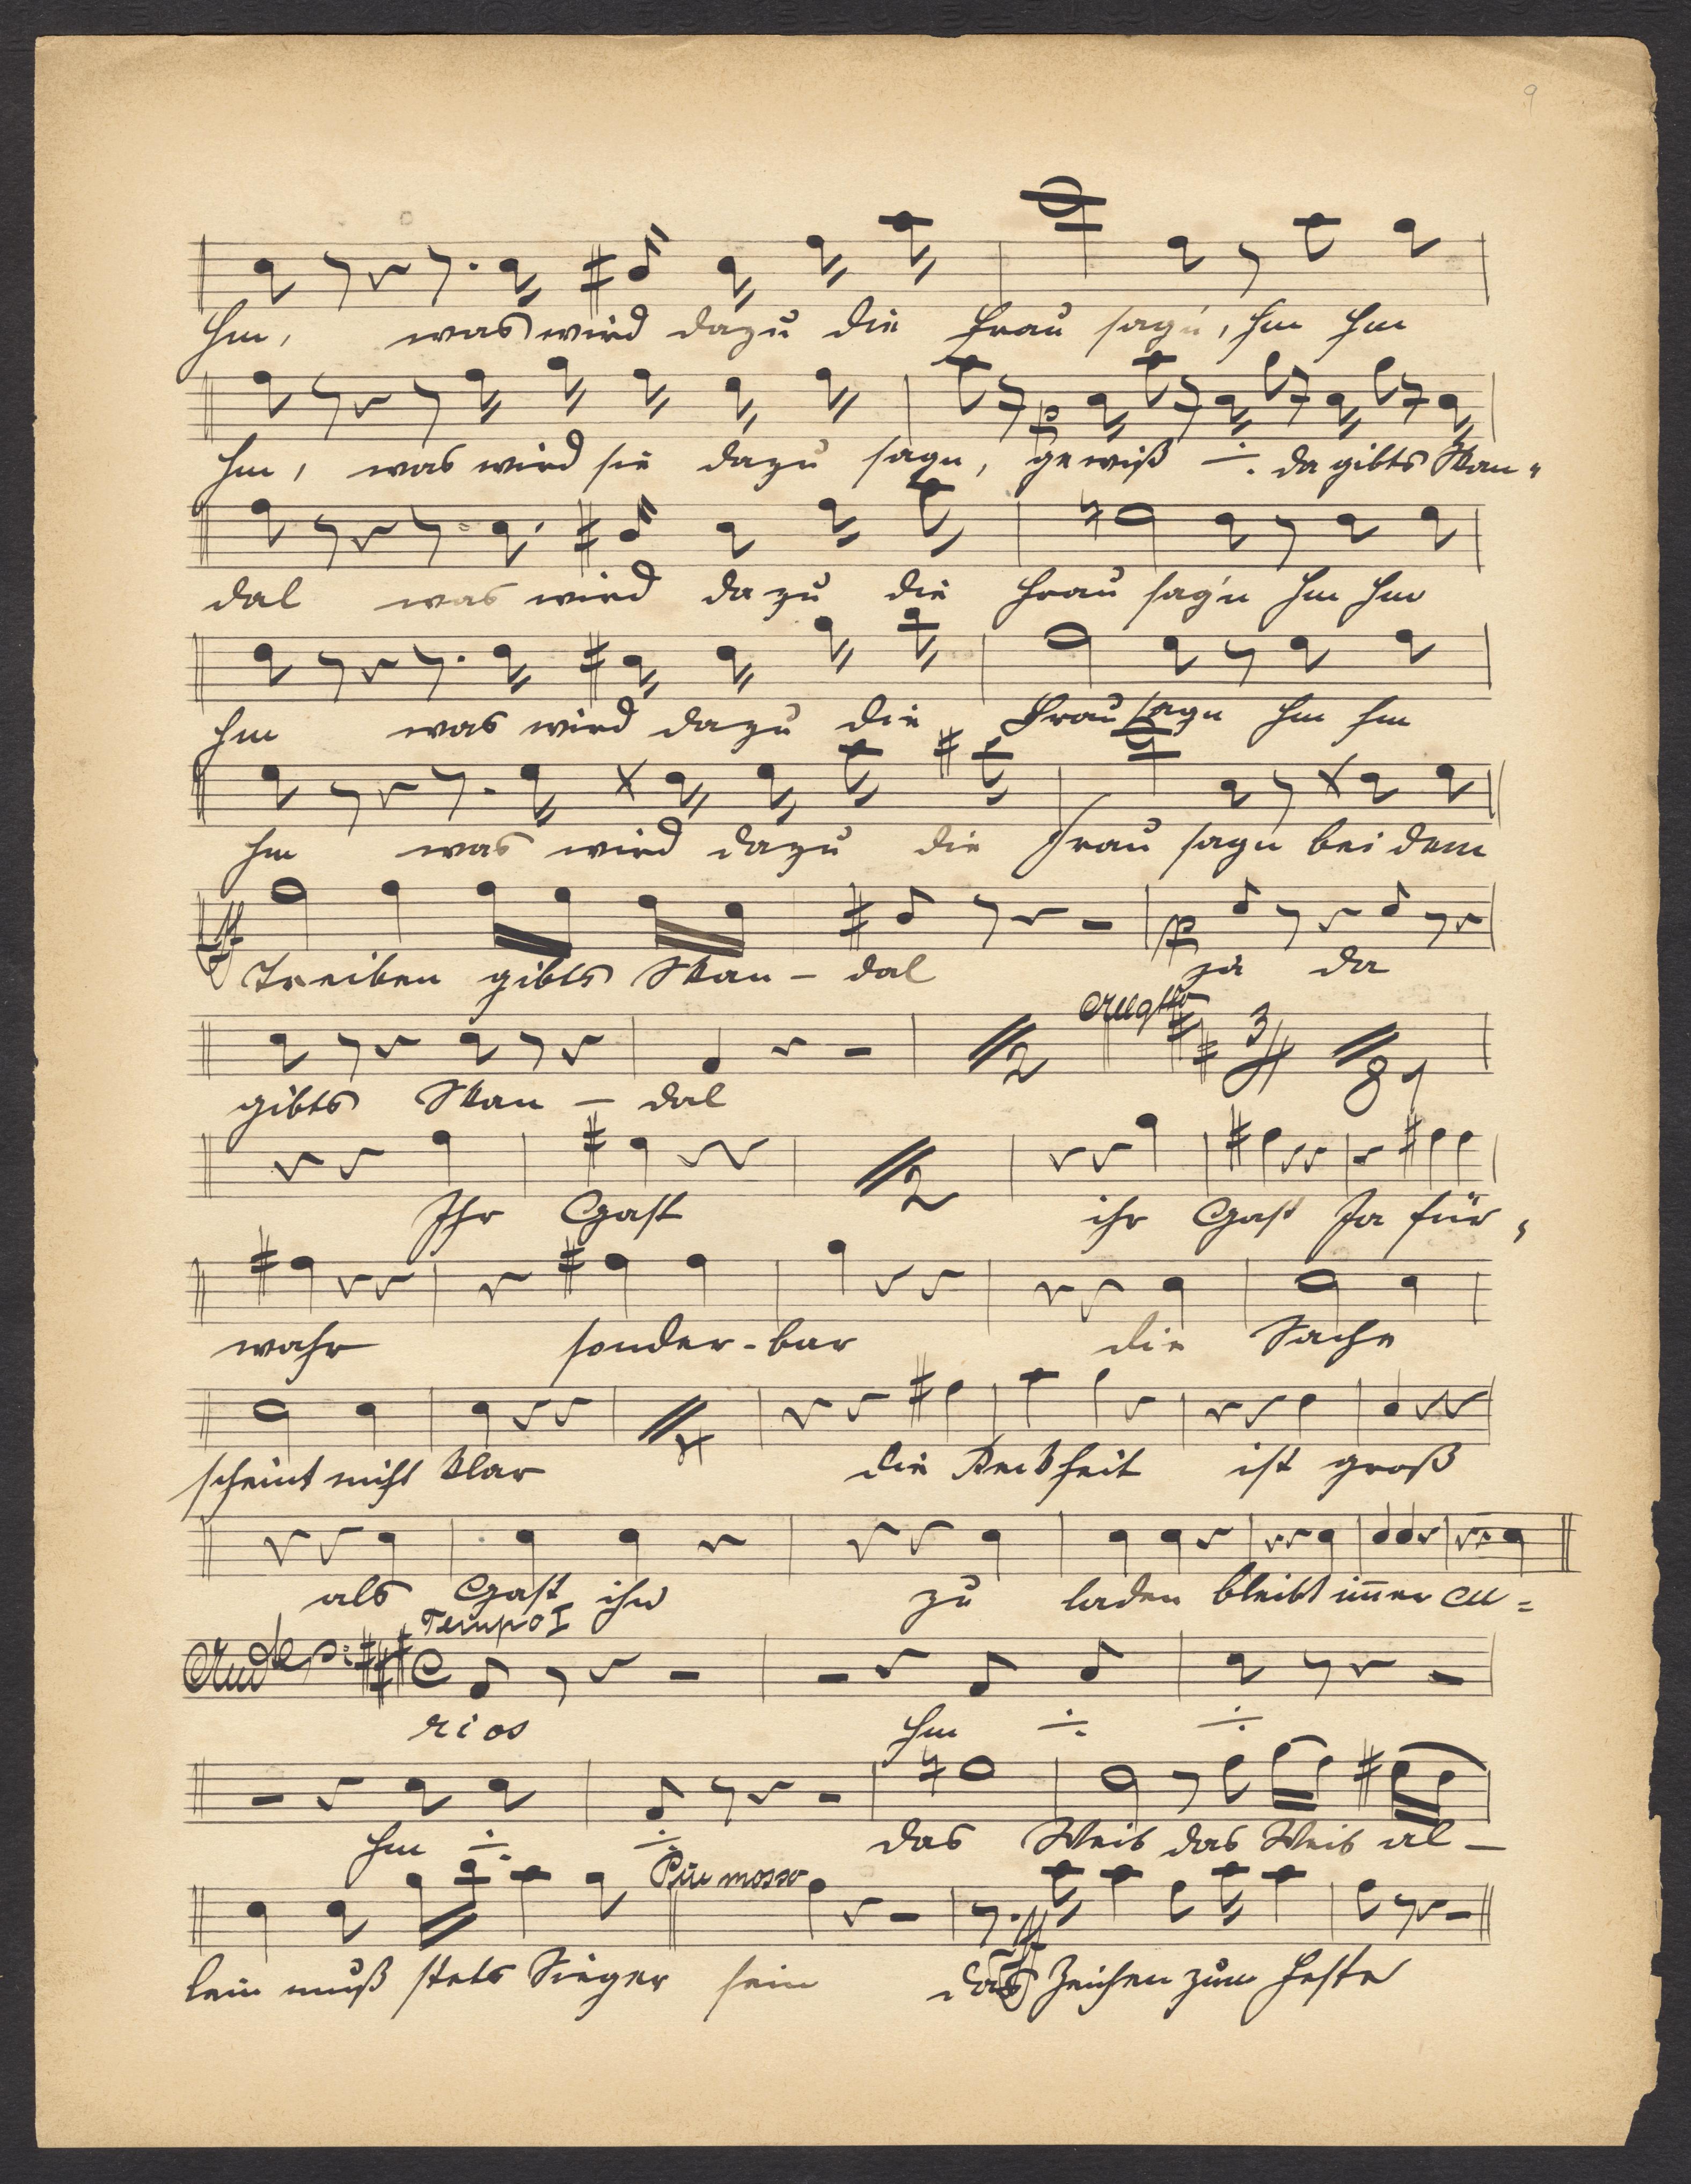 9
Hm, was wird dazu die Frau sag'n, hm hm
hm, was wird sie dazu sagn, gewiß ·/. da gibts Skan-
p
dal was wird dazu die Frau sag'n hm hm
hm was wird dazu die Frau sagn hm hm
hm was wird dazu die Frau sagn bei dem
ff p
Treiben gibts Skan - dal ja da
Allgtto 3/4
2 8
gibts Skan - dal
2
Ihr Gast ihr Gast Ja für-
wahr sonder-bar die Sache
4
scheint nicht klar die Keckheit ist groß
als Gast ihn zu laden bleibt im̄er cu=
Tempo I
C
rios hm ·/. ·/.
hm ·/. ·/. das Weib das Weib al-
Più mosso
ff
lein muß stets Sieger sein das Zeichen zum Feste